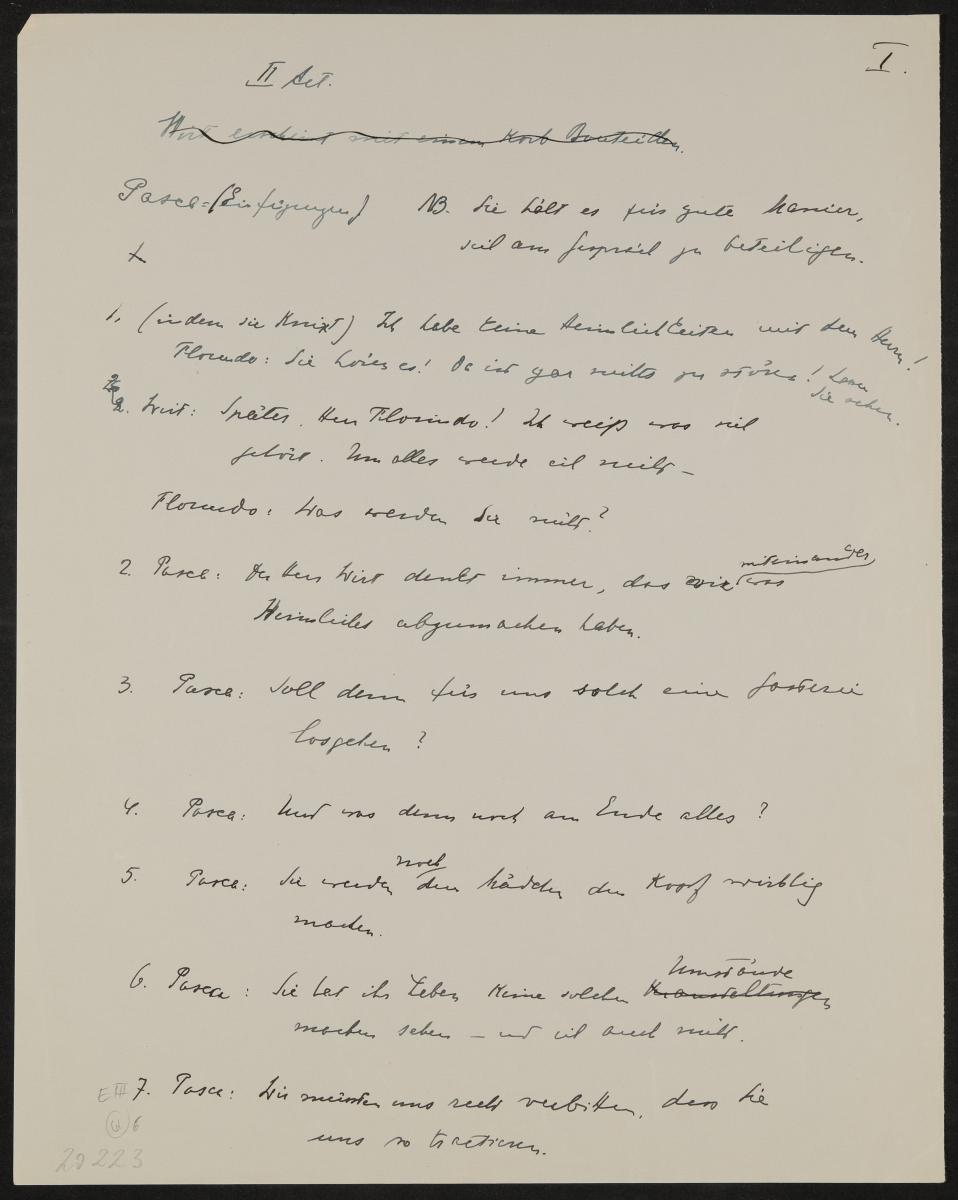 I.
II Act.
Wirt erscheint mit einem Korb Bouteillen.
Pasca = (Einfügungen) NB. Sie hält es für gute Manier,
sich am Gespräch zu beteiligen.
1. (indem sie knixt) Ich habe keine Heimlichkeiten mit dem Herrn!
Florindo: Sie hören es! Da ist gar nichts zu stören! Lassen
Sie sehen.
2. Wirt: Später, Herr Florindo! Ich weiß was sich
gehört. Um alles werde ich nicht –
Florindo: Was werden Sie nicht?
miteinander
2. Pasca: Der Herr Wirt denkt immer, das wir was
Heimliches abzumachen haben.
3. Pasca: Soll denn für uns solch eine Gasterei
losgehen?
4. Pasca: Und was denn noch am Ende alles?
noch
5. Pasca: Sie werden dem Mädchen den Kopf wirblig
machen.
Umstände
6. Pasca: Sie hat ihr Leben keine solchen Veranstaltungen
machen sehen – und ich auch nicht.
7. Pasca: Wir müssten uns recht verbitten, dass Sie
uns so tractieren.
E III
6
20223